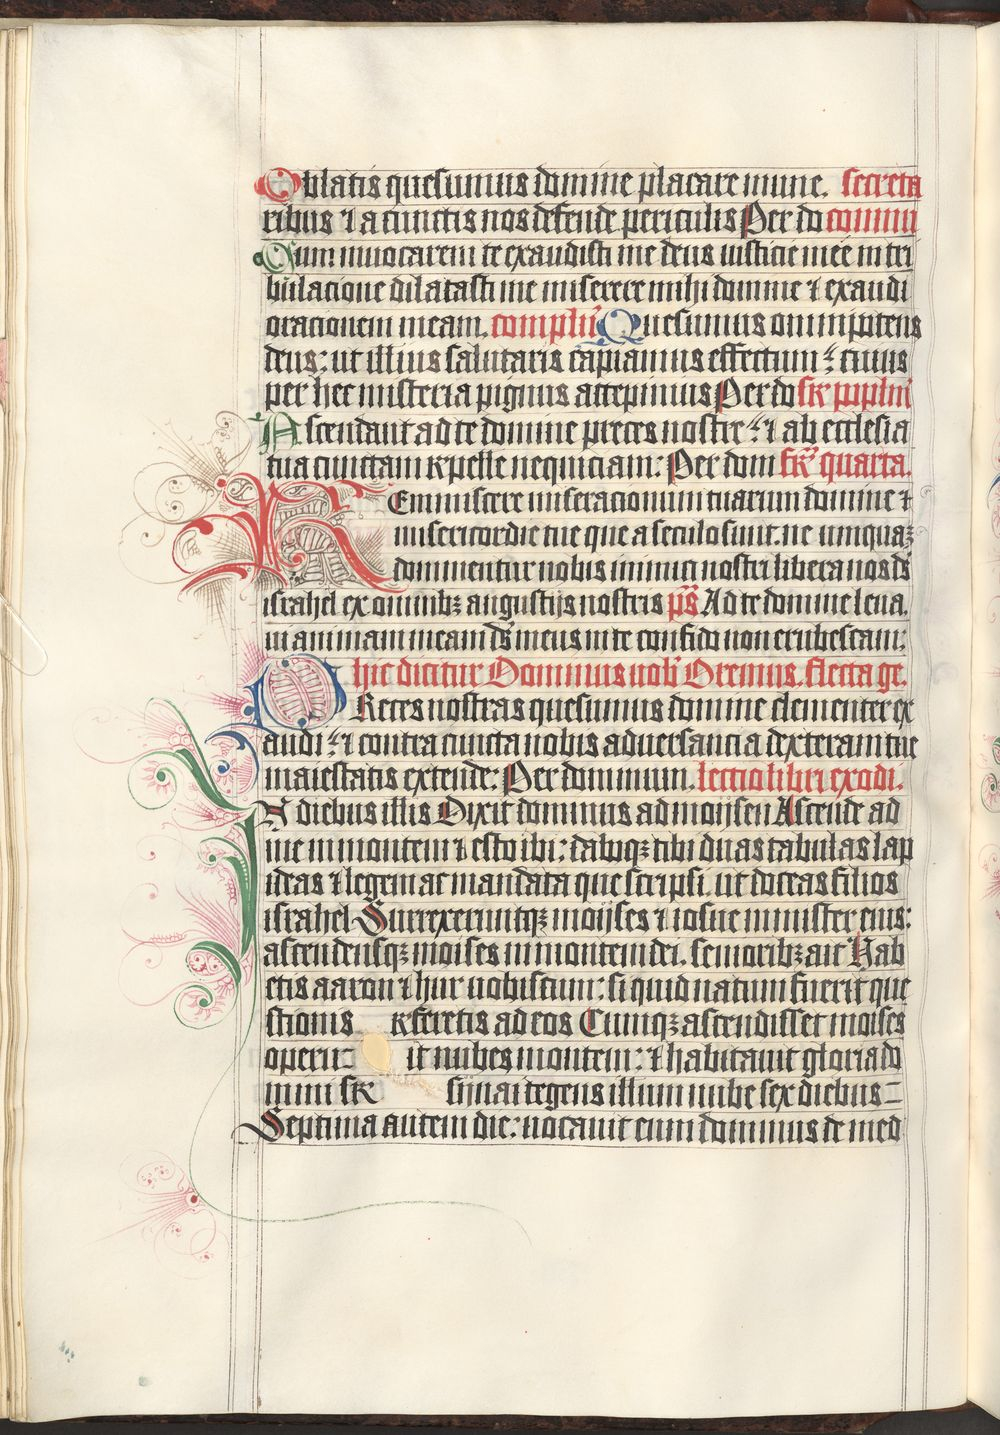 Oblatis quesumus domine placare mune. secreta
ribus ⁊ a cunctis nos defende periculis Per do commu
Cum inuocarem te exaudisti me deus iusticie mee in tri
bulacione dilatasti me miserere mihi domine ⁊ exaudi
orationem meam. complen̄ Quesumus omnipotens
deus: ut illius salutaris capiamus effectum: cuius
per hec misteria pignus accepimus Per do sr̄ pp̄lm̄
Ascendant ad te domine preces nostre: ⁊ ab ecclesia
tua cunctam repelle nequiciam: Per dom fr̄ quarta.
Reminiscere miseracionum tuarum domine ⁊
misericordie tue que a seculo sunt. ne umquaꝫ
dominentur nobis inimici nostri libera nos ds̄
israhel ex omnibꝫ angustijs nostris ps̄ Ad te domine leua
ui animam meam ds̄ meus in te confido non erubescam:
hic dicitur Dominus uob̄ Oremus. flecta ge.
PReces nostras quesumus domine clementer ex
audi: ⁊ contra cuncta nobis aduersancia dexteram tue
maiestatis extende: Per dominum. lectio libri exodi.
IN diebus illis Dixit dominus ad moijsen Ascende ad
me in montem ⁊ esto ibi: daboqꝫ tibi duas tabulas lap
ideas ⁊ legem ac mandata que scripsi. ut doceas filios
israhel Surrexeruntqꝫ moijses ⁊ iosue minister eius:
ascendensqꝫ moises in montem dei. senioribꝫ ait Hab
etis aaron ⁊ hur uobiscum: si quid natum fuerit que
stionis referetis ad eos Cumqꝫ ascendisset moises
operuit nubes montem: ⁊ habitauit gloria do
mini sr̄ sijnai tegens illum nube sex diebus
Septima autem die: uocauit eum dominus de med